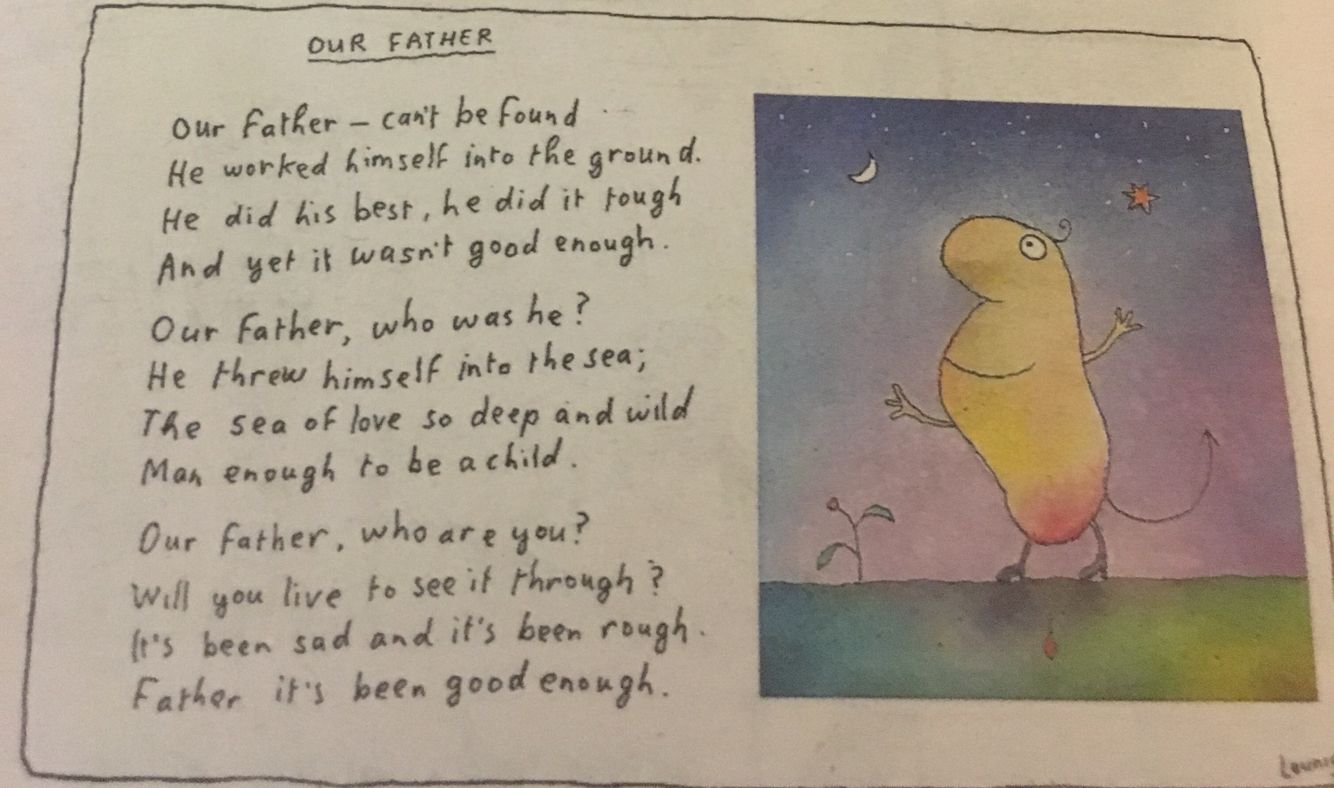 OUR FATHER
Our Father – can't be found
He worked himself into the ground.
He did his best, he did it tough
And yet it wasn't good enough.
Our Father, who was he?
He threw himself into the sea;
The sea of love so deep and wild
Man enough to be a child.
Our Father, who are you?
Will you live to see it through?
It's been sad and it's been rough.
Father it's been good enough.